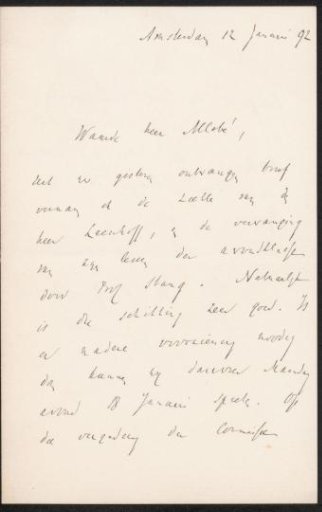 Amsterdam 12 Januari 92
Waarde heer Allebé,
uw gisteren ontvangen brief
vernam ik de ziekte van de
heer Leenhoff, en de vervanging
van zijn lessen der avondklasse
door Prof Stang. Natuurlijk
is die schikking zeer goed. Is
er nadere voorziening noodig
dan kunnen wij daarover Maandag
avond 18 Januari spreken. Op
de vergadering der Commissie